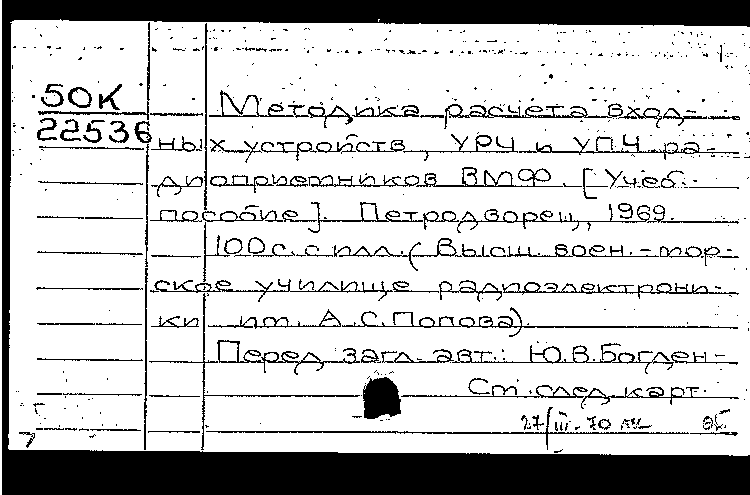 50К
22536
Методика расчета вход-
ных устройств, УРЧ и УПЧ ра-
диоприемников ВМФ. [Учеб.
пособие]. Петродворец, 1969.
100 с. с илл. (Высш. воен.-мор-
ское училище радиоэлектрони-
ки им. А.С.Попова).
Перед загл. авт.: Ю.В.Богден-
См. след. карт.
27/III-70
7